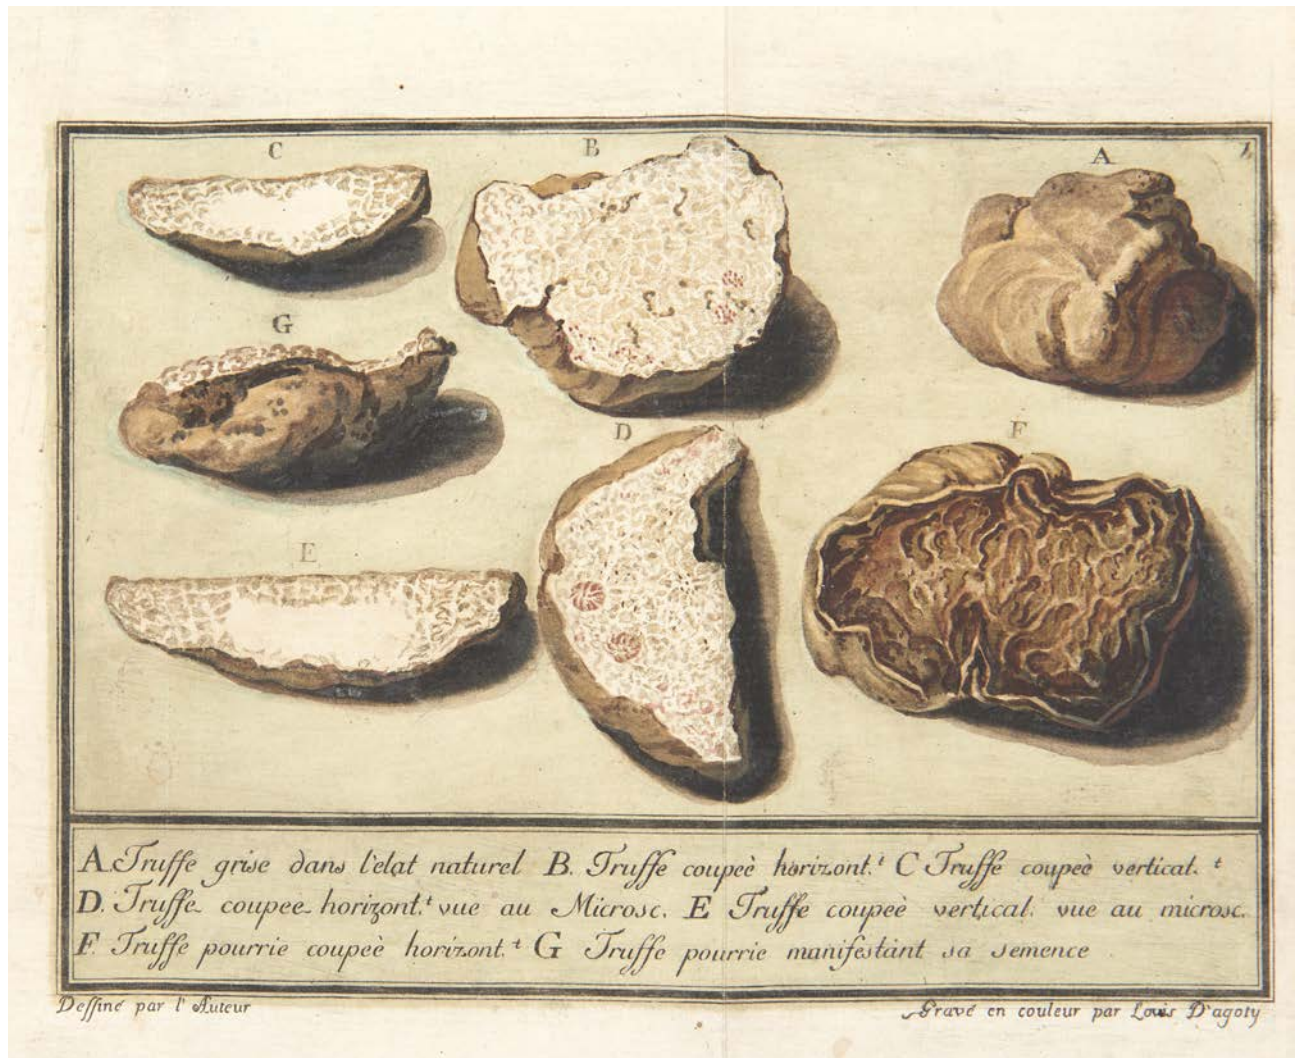 C B A 1
G
D F
E
A. Truffe grise dans l'etat naturel B. Truffe coupeè horizont.t C Truffe coupeè vertical. t
D. Truffe coupee horizont.t vue au Microsc. E Truffe coupeè vertical. vue au microsc.
F. Truffe pourrie coupeè horizont.t G Truffe pourrie manifestant sa semence
Dessiné par l'Auteur
Gravé en couleur par Louis D'agoty